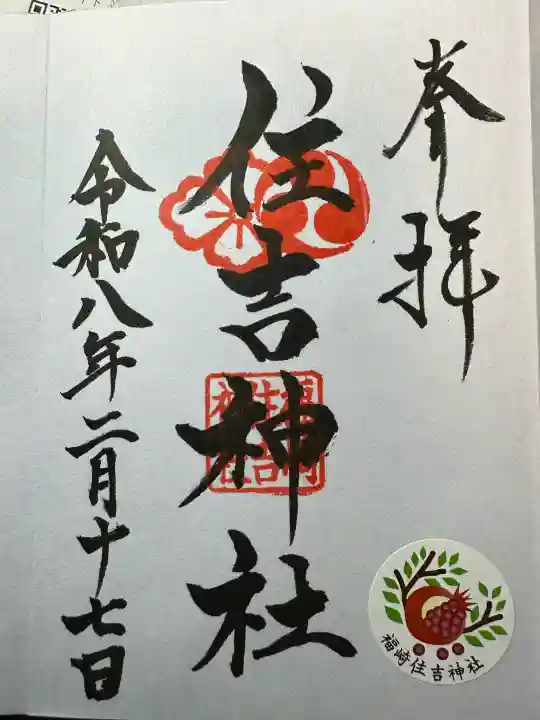 奉拝
住吉神社
令和八年二月十七日
福崎住吉神社